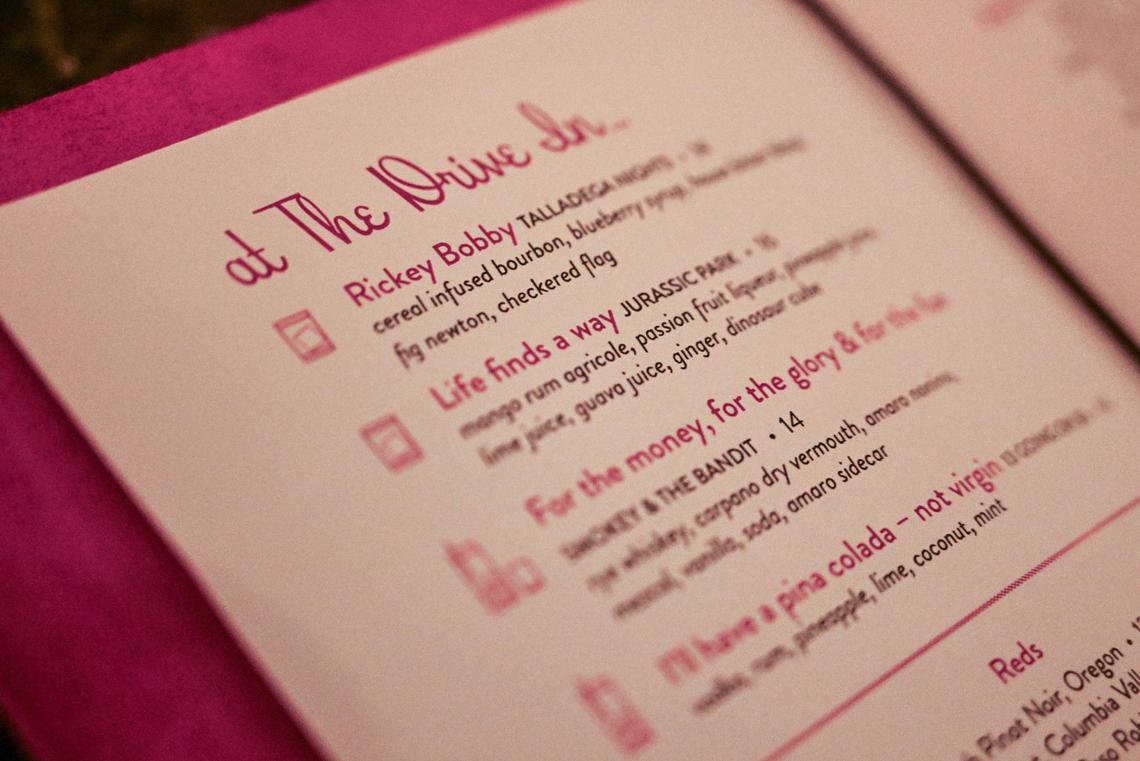 at The Drive In...
Rickey Bobby TALLADEGA NIGHTS • 14
cereal infused bourbon, blueberry syrup,
fig newton, checkered flag
Life finds a way JURASSIC PARK • 15
mango rum agricole, passion fruit liqueur, pineapple juice,
lime juice, guava juice, ginger, dinosaur cube
For the money, for the glory & for the fun
SMOKEY & THE BANDIT • 14
rye whiskey, carpano dry vermouth, amaro nonino,
mezcal, vanilla, soda, amaro sidecar
I'll have a pina colada – not virgin 13 GOING ON 30 •
vodka, rum, pineapple, lime, coconut, mint
Reds
Pinot Noir, Oregon •
Columbia Vall